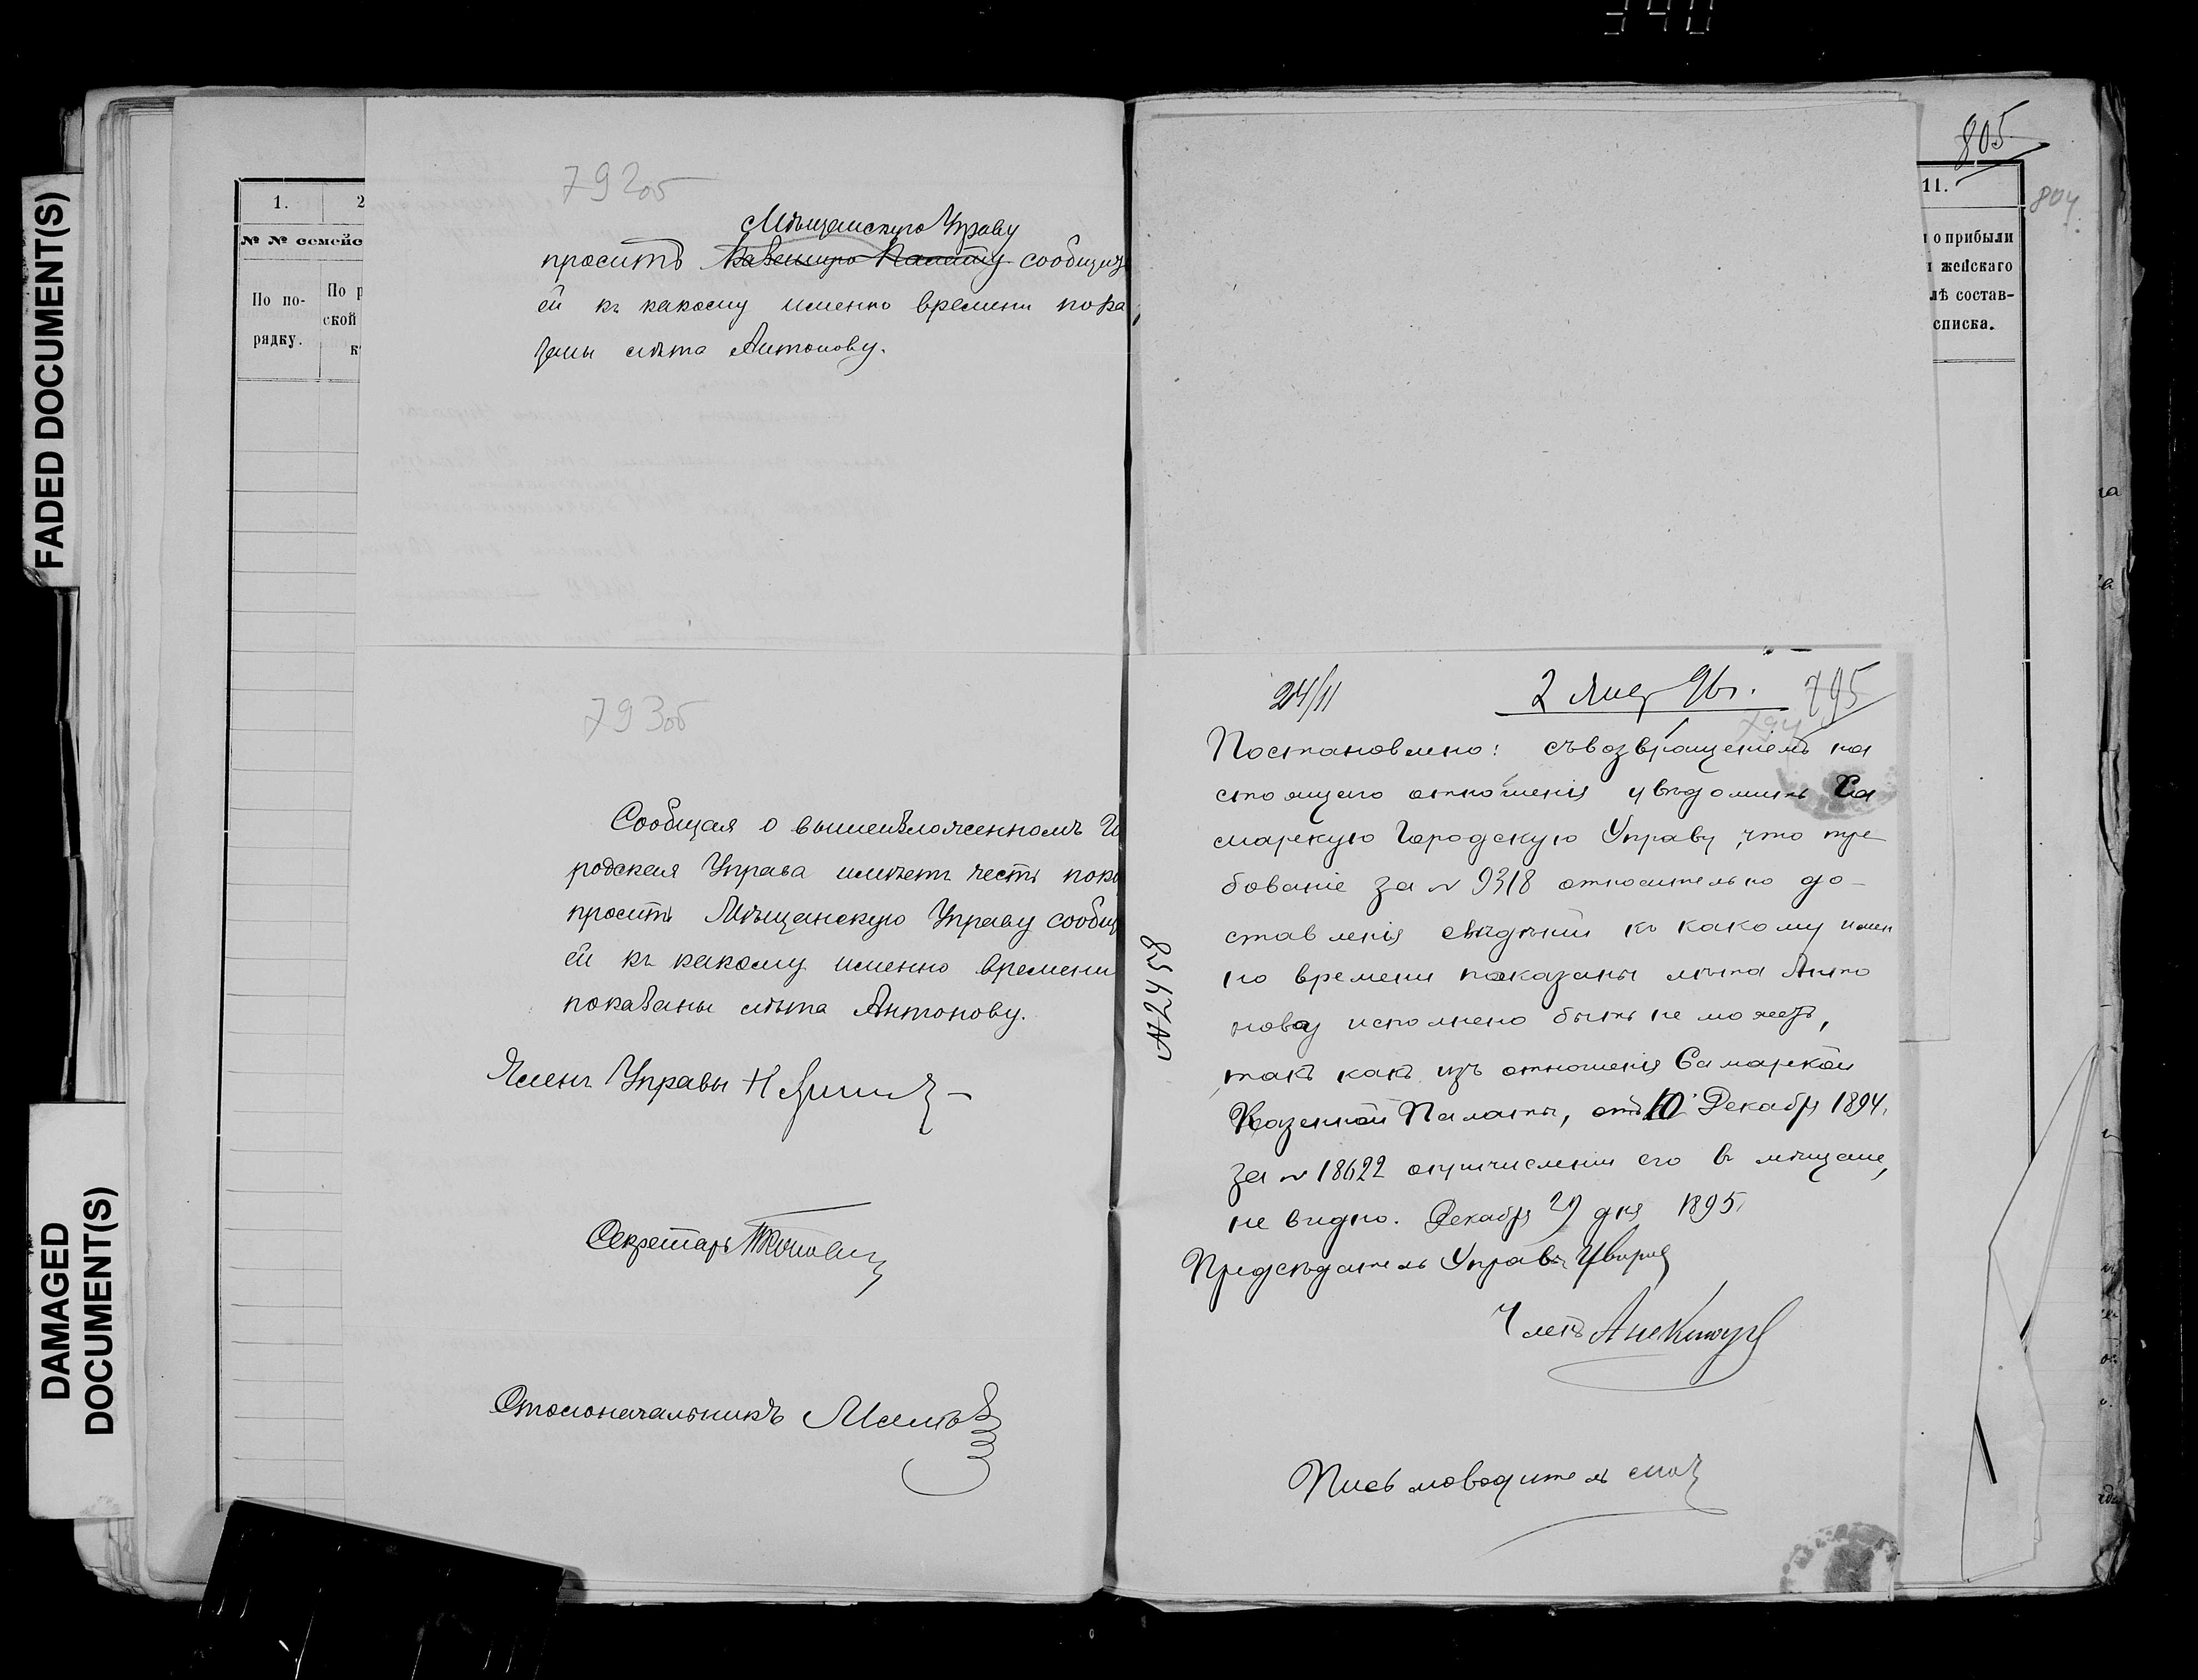 340
FADED DOCUMENT(S)
DAMAGED
DOCUMENT(S)
1. 2
№ № семейс
По по-
рядку.
По р
ской
к
792об
Мѣщанскую Управу
просить Казенную Палату сообщить
ей къ какому именно времени пока
заны лѣта Антонову.
793об
Сообщая о вышеизложенномъ Го
родская Управа имѣетъ честь поко
просить Мѣщанскую Управу сообщ
ей къ какому именно времени
показаны лѣта Антонову.
Членъ Управы Н
Секретарь
Столоначальникъ
805
804
11.
о прибыли
женскаго
лѣ состав-
списка.
24/11 2 Янв 96 г. 795
794
Постановлено: съ возвращеніемъ на
стоящаго отношенія увѣдомить Са
марскую Городскую Управу, что тре
бованіе за № 9318 относительно до-
ставленія свѣдѣній къ какому имен
но времени показаны лѣта Анто
нову исполнено быть не можетъ,
такъ какъ изъ отношенія Самарской
Казенной Палаты, отъ 10 Декабря 1894,
за № 18622 о причисленіи его въ мѣщане,
не видно. Декабря 29 дня 1895,
Предсѣдатель Управы
Членъ
Письмоводитель
№ 2458